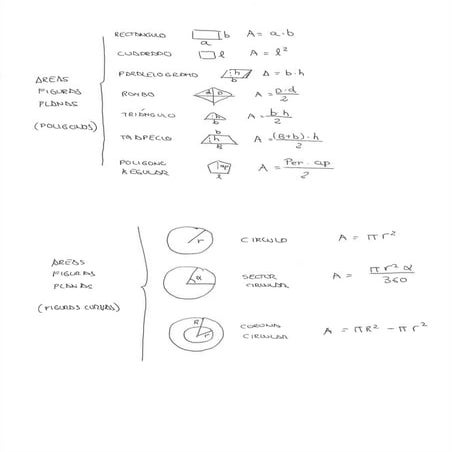 AREAS
FIGURAS
PLANAS
(POLIGONOS)
RECTANGULO a b A = a·b
CUADRADO l A = l²
PARALELOGRAMO h b A = b·h
ROMBO d D A = D·d/2
TRIÁNGULO h b A = b·h/2
TRAPECIO b h B A = (B+b)·h/2
POLIGONO
REGULAR ap l A = Per·ap/2
AREAS
FIGURAS
PLANAS
(FIGURAS CURVAS)
r CIRCULO A = πr²
α SECTOR
CIRCULAR A = πr²α/360
R r CORONA
CIRCULAR A = πR² − πr²